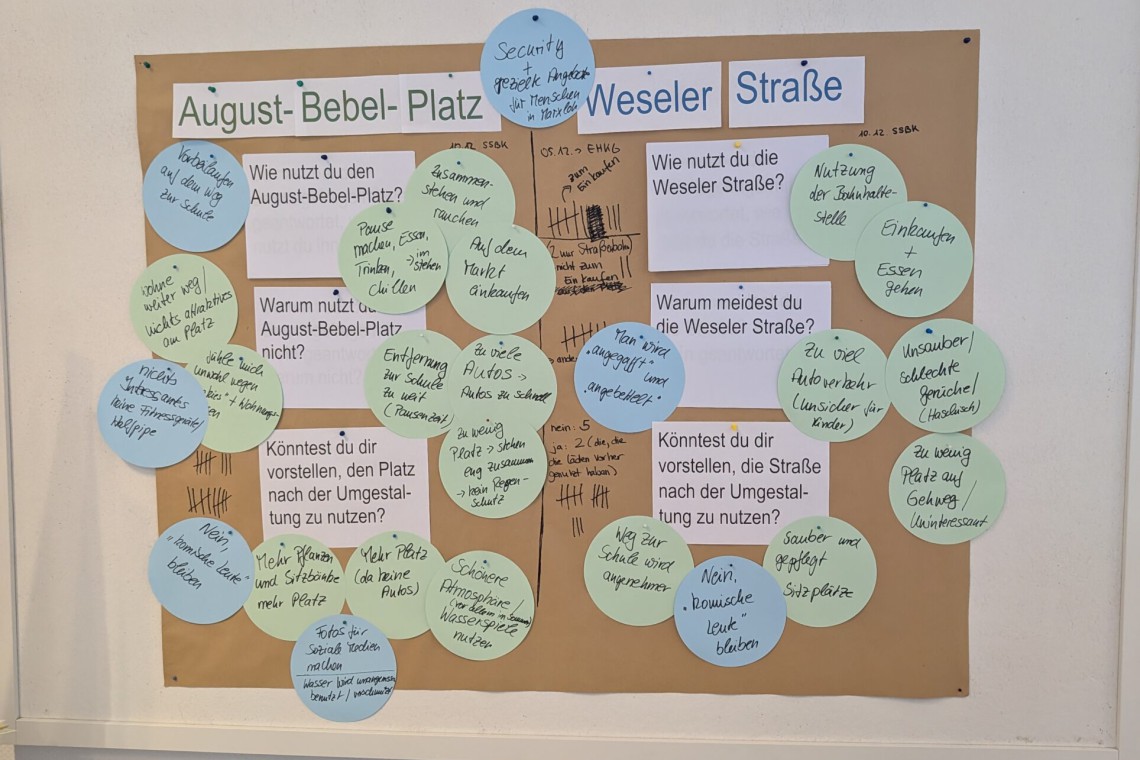 Security
+
gezielte Angebote
für Menschen
in Marxloh
August-Bebel-Platz
Weseler Straße
10.12. SSBK
Vorbeilaufen
auf dem Weg
zur Schule
Wie nutzt du den
August-Bebel-Platz?
Zusammen-
stehen und
rauchen
Pause
machen, Essen,
Trinken, → im
stehen
chillen
Auf dem
Markt
einkaufen
wohne
weiter weg /
nichts attraktives
am Platz
Warum nutzt du
August-Bebel-Platz
nicht?
fühle mich
unwohl wegen
nichts
Interessantes
keine Fitnessgeräte/
Halfpipe
Entfernung
zur Schule
zu weit
(Pausenzeit)
Zu viele
Autos →
Autos zu schnell
zu wenig
Platz → stehen
eng zusammen
→ kein Regen-
schutz
Könntest du dir
vorstellen, den Platz
nach der Umgestal-
tung zu nutzen?
Nein,
"komische Leute"
bleiben
Mehr Pflanzen
und Sitzbänke
mehr Platz
Mehr Platz
(da keine
Autos)
Schönere
Atmosphäre/
(vor allem im Sommer)
Wasserspiele
nutzen
Fotos für
Soziale Medien
machen
Wasser wird
benutzt /
05.12. → EHKG
zum
Einkaufen
(2 nur Straßenbahn
nicht zum
Einkaufen
nein: 5
ja: 2 (die, die
die Läden vorher
genutzt haben)
10.12. SSBK
Wie nutzt du die
Weseler Straße?
Nutzung
der Bahnhalte-
stelle
Einkaufen
+
Essen
gehen
Warum meidest du
die Weseler Straße?
Man wird
"angegafft" und
"angebettelt"
Zu viel
Autoverkehr
(unsicher für
Kinder)
Unsauber/
schlechte
Gerüche/
(Haschisch)
Zu wenig
Platz auf
Gehweg /
Uninteressant
Könntest du dir
vorstellen, die Straße
nach der Umgestal-
tung zu nutzen?
Weg zur
Schule wird
angenehmer
Nein,
"komische
Leute"
bleiben
sauber und
gepflegt
Sitzplätze